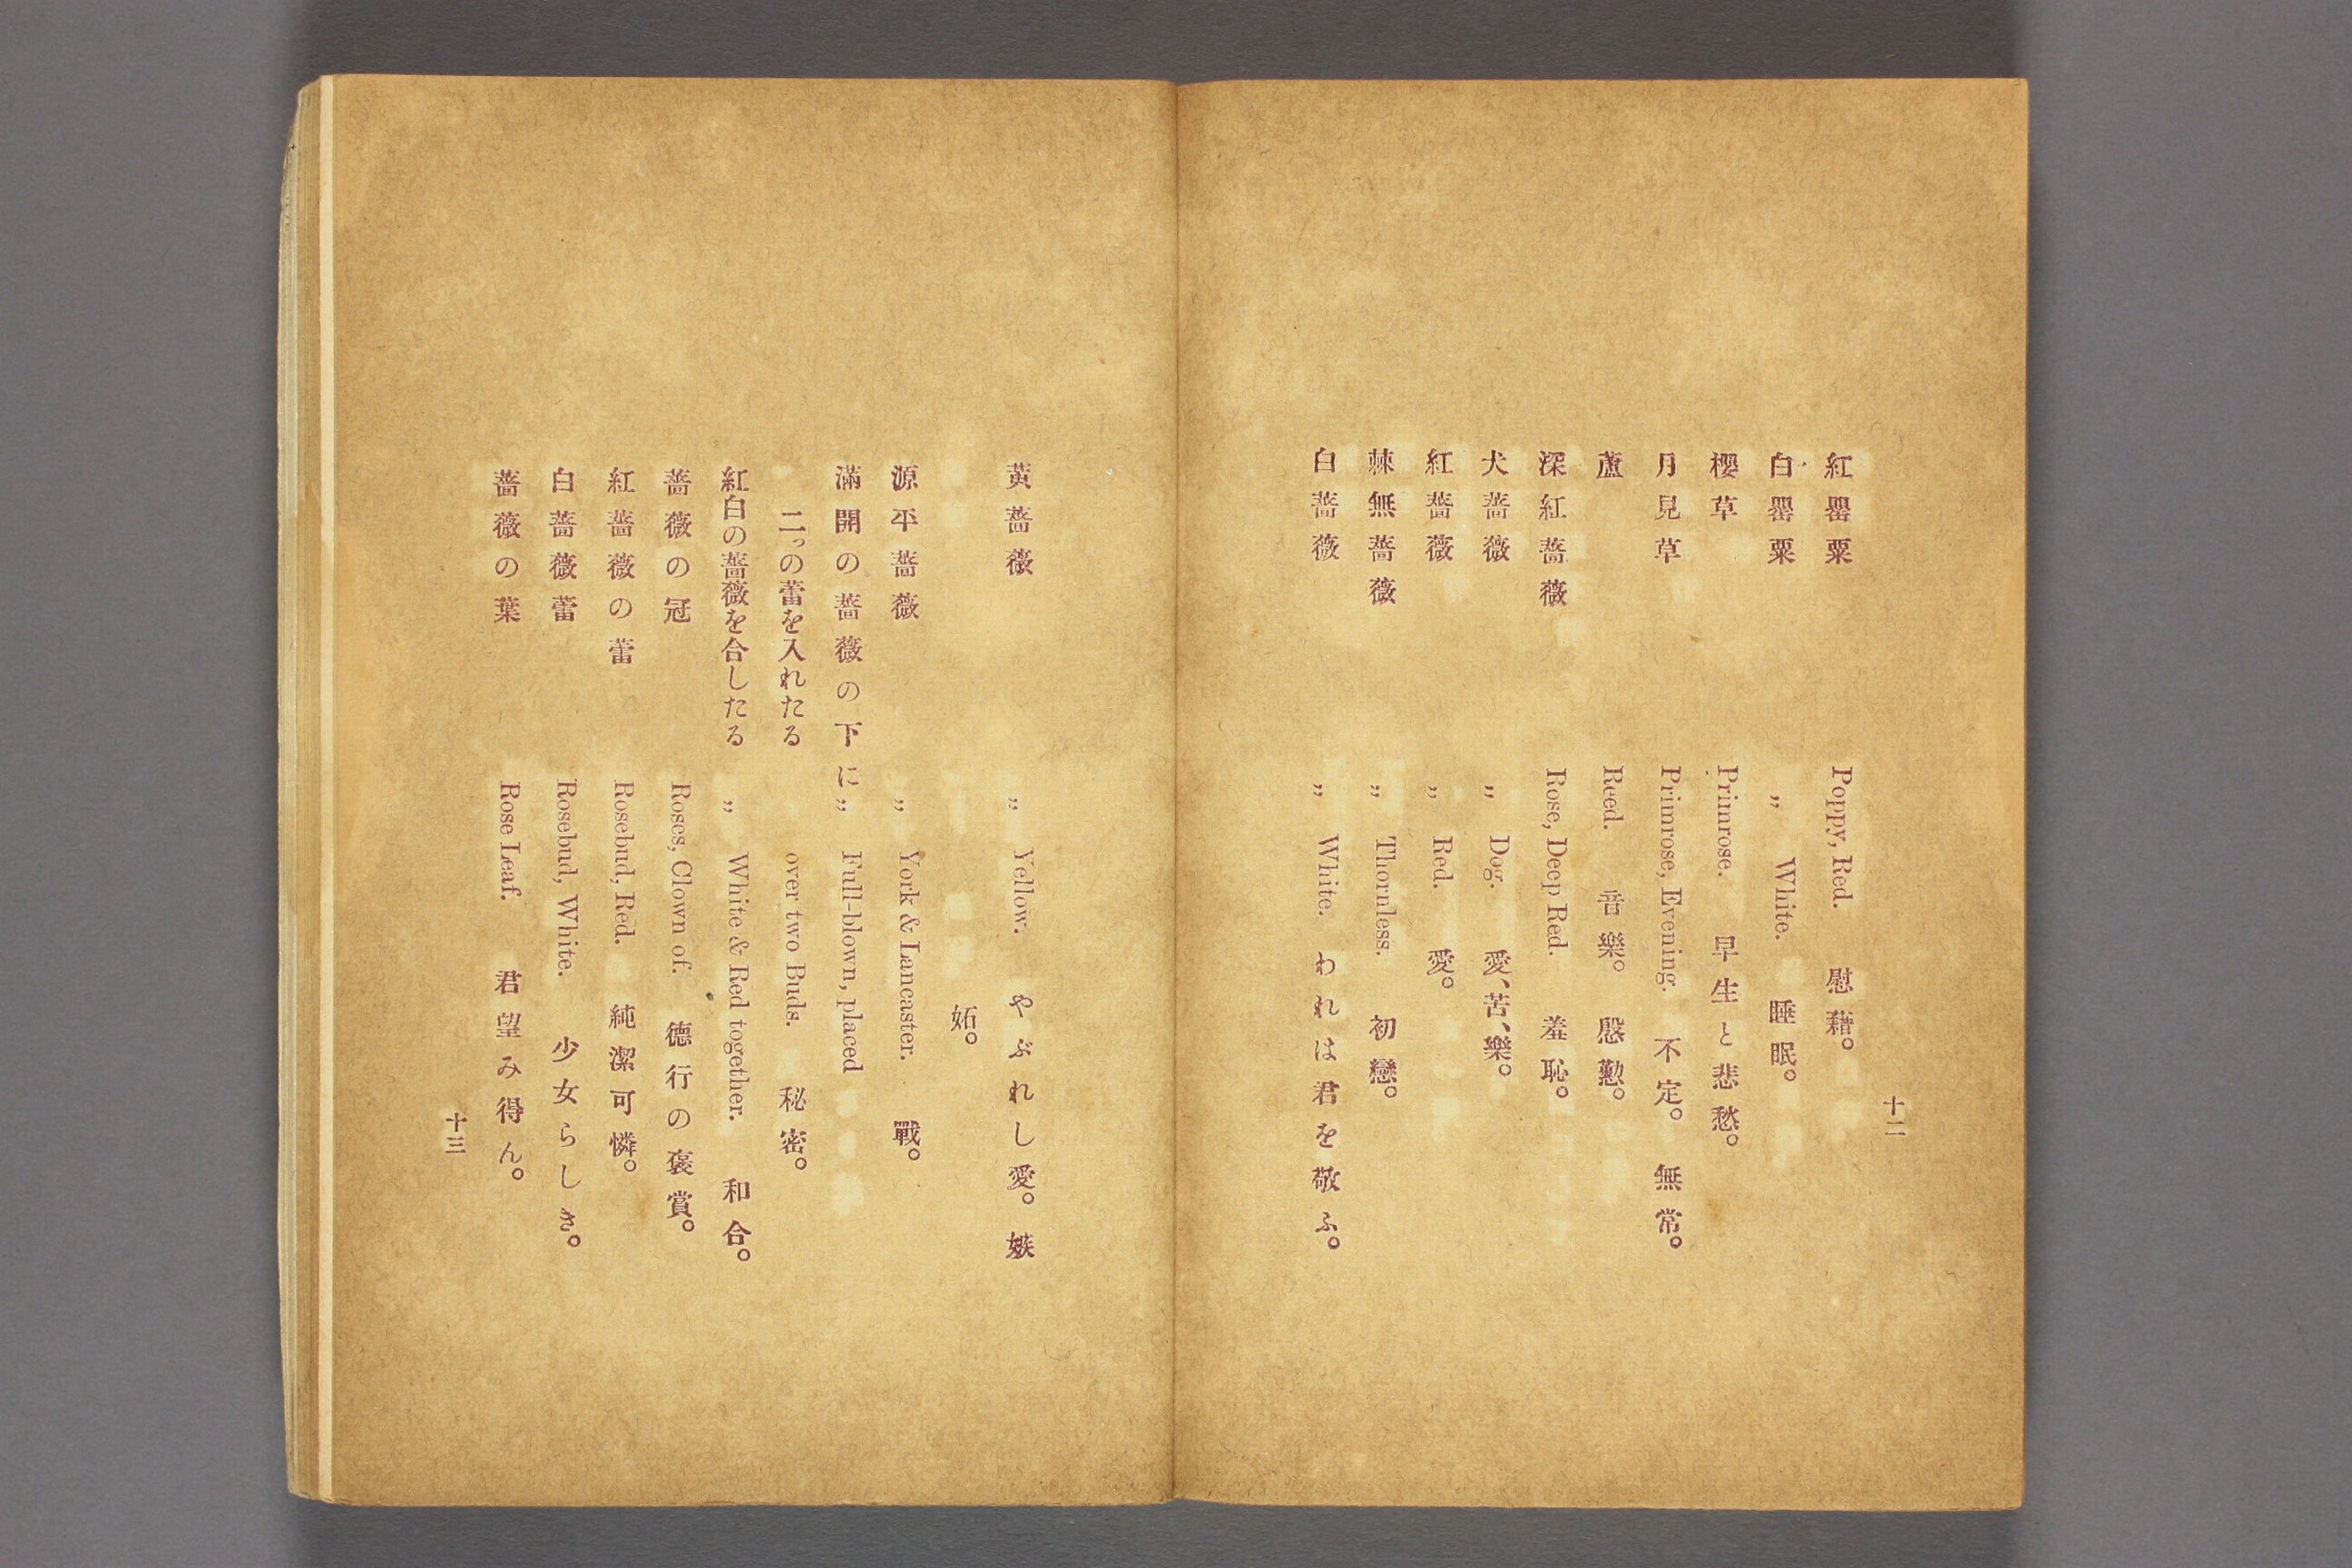 十二
紅罌粟 Poppy, Red. 慰藉。
白罌粟 〃 White. 睡眠。
櫻草 Primrose. 早生と悲愁。
月見草 Primrose, Evening. 不定。無常。
蘆 Reed. 音樂。慇懃。
深紅薔薇 Rose, Deep Red. 羞恥。
犬薔薇 〃 Dog. 愛、苦、樂。
紅薔薇 〃 Red. 愛。
棘無薔薇 〃 Thornless. 初戀。
白薔薇 〃 White. われは君を敬ふ。
黄薔薇 〃 Yellow. やぶれし愛。嫉
妬。
源平薔薇 〃 York & Lancaster. 戰。
滿開の薔薇の下に 〃 Full-blown, placed
二つの蕾を入れたる over two Buds. 秘密。
紅白の薔薇を合したる 〃 White & Red together. 和合。
薔薇の冠 Roses, Clown of. 德行の褒賞。
紅薔薇の蕾 Rosebud, Red. 純潔可憐。
白薔薇蕾 Rosebud, White. 少女らしき。
薔薇の葉 Rose Leaf. 君望み得ん。
十三